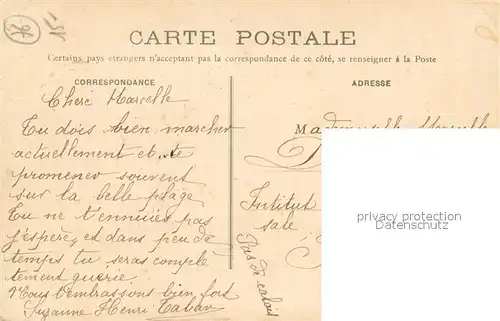 CARTE POSTALE
Certains pays étrangers n'acceptant pas la correspondance de ce côté, se renseigner à la Poste
CORRESPONDANCE
Cheré Marcelle
Tu dois bien marcher
actuellement et te
promener souvent
sur la belle plage
Tu ne t'ennuies pas
j'espère, et dans peu de
temps tu seras complè
tement guérie
Nous t'embrassons bien fort
Suzanne Henri
ADRESSE
Mademoiselle Marcelle
Institut
sale
Pas de calais
privacy protection
Datenschutz